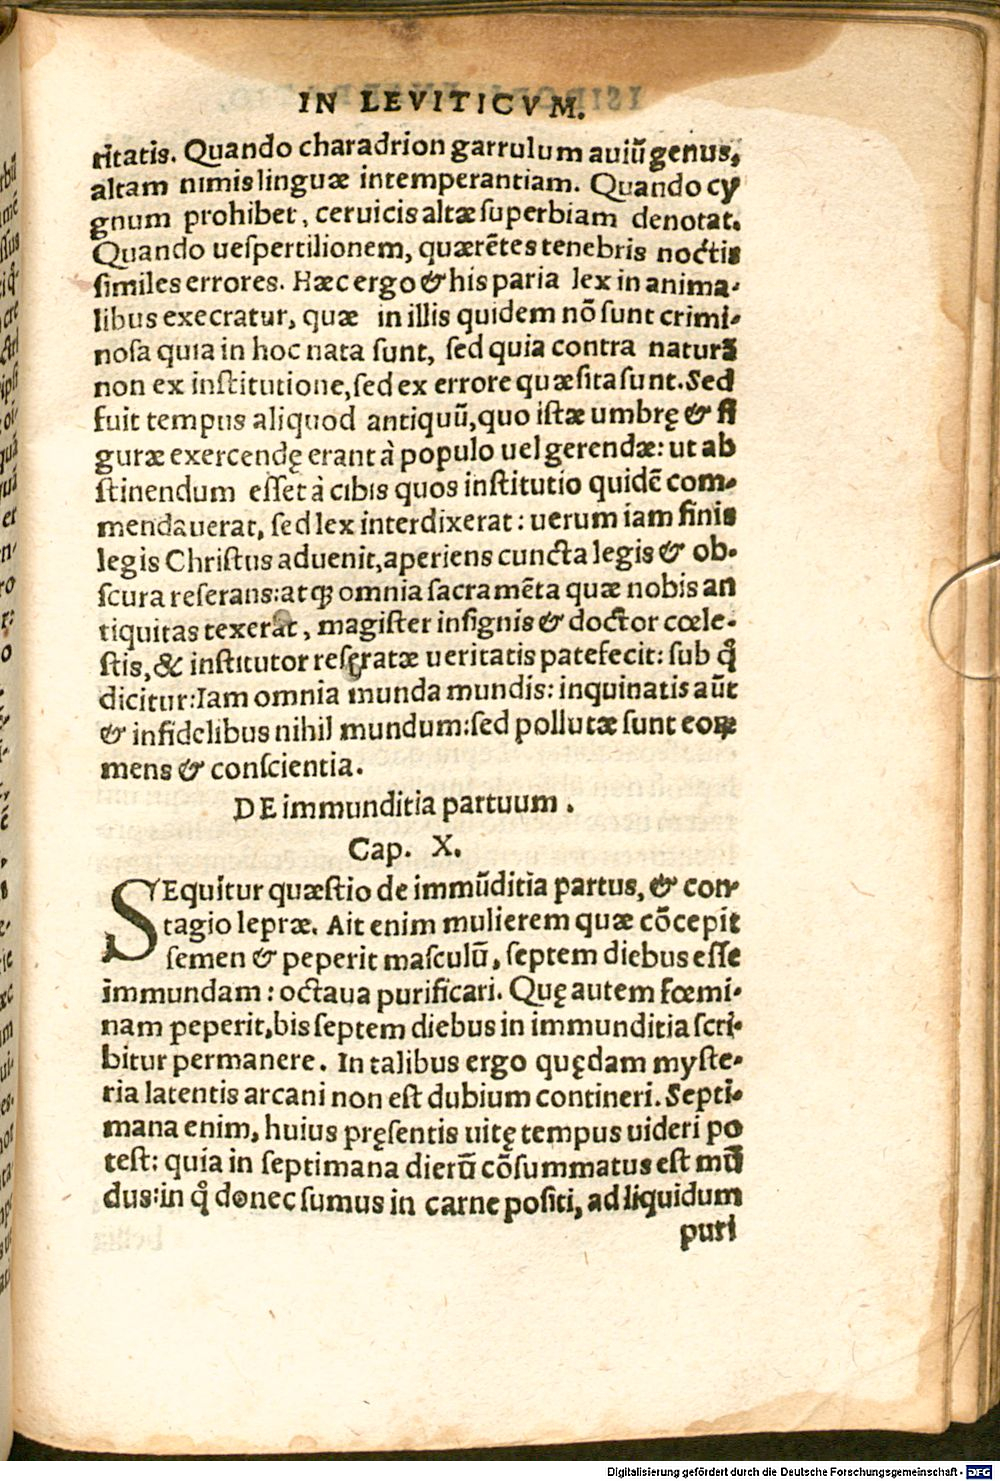 IN LEVITICVM.
ritatis. Quando charadrion garrulum auiũ genus,
altam nimis linguæ intemperantiam. Quando cy
gnum prohibet, ceruicis altæ ſuperbiam denotat.
Quando ueſpertilionem, quærẽtes tenebris noctis
ſimiles errores. Hæc ergo & his paria lex in anima-
libus execratur, quæ in illis quidem nõ ſunt crimi-
noſa quia in hoc nata ſunt, ſed quia contra naturã
non ex inſtitutione, ſed ex errore quæſita ſunt. Sed
fuit tempus aliquod antiquũ, quo iſtæ umbrę & fi
guræ exercendę erant à populo uel gerendæ: ut ab
ſtinendum eſſet à cibis quos inſtitutio quidẽ com-
mendauerat, ſed lex interdixerat: uerum iam finis
legis Chriſtus aduenit, aperiens cuncta legis & ob-
ſcura reſerans: atqꝫ omnia ſacramẽta quæ nobis an
tiquitas texerat, magiſter inſignis & doctor cœle-
ſtis, & inſtitutor reſeratæ ueritatis patefecit: ſub qͦ
dicitur: Iam omnia munda mundis: inquinatis aũt
& infidelibus nihil mundum: ſed pollutæ ſunt eoꝝ
mens & conſcientia.
DE immunditia partuum.
Cap. X.
SEquitur quæſtio de immũditia partus, & con-
tagio lepræ. Ait enim mulierem quæ cõcepit
ſemen & peperit maſculũ, ſeptem diebus eſſe
immundam: octaua purificari. Quę autem fœmi-
nam peperit, bis ſeptem diebus in immunditia ſcri-
bitur permanere. In talibus ergo quędam myſte-
ria latentis arcani non eſt dubium contineri. Septi-
mana enim, huius pręſentis uitę tempus uideri po
teſt: quia in ſeptimana dierũ cõſummatus eſt mũ
dus: in qͦ donec ſumus in carne poſiti, ad liquidum
puri
Digitalisierung gefördert durch die Deutsche Forschungsgemeinschaft - DFG